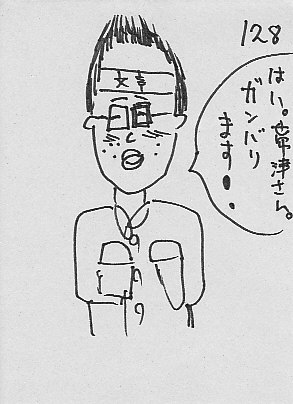 128
はい。常津さん。
ガンバリ
ます!